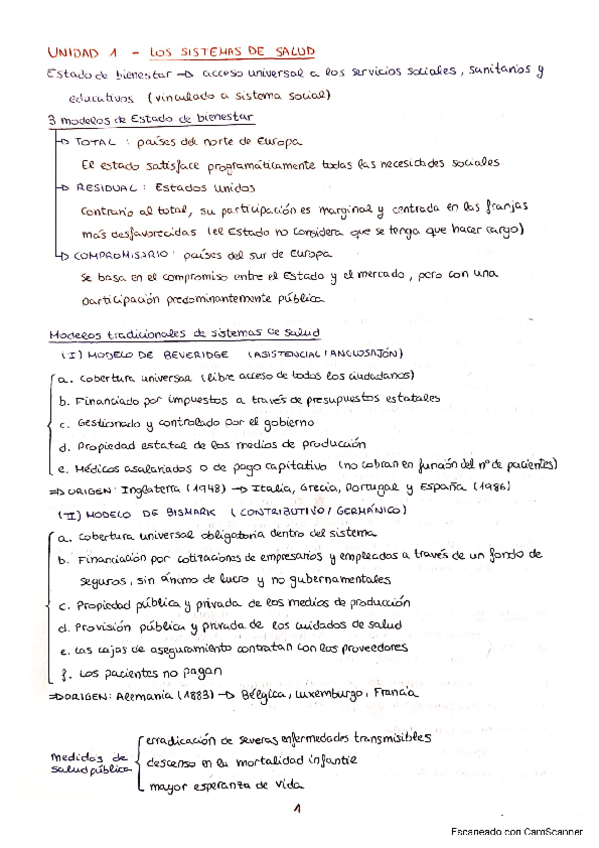 UNIDAD 1 - LOS SISTEMAS DE SALUD
Estado de bienestar → acceso universal a los servicios sociales, sanitarios y
educativos (vinculado a sistema social)
3 modelos de Estado de bienestar
→ TOTAL : países del norte de Europa
El estado satisface programáticamente todas las necesidades sociales
→ RESIDUAL : Estados Unidos
Contrario al total, su participación es marginal y centrada en las franjas
más desfavorecidas (el Estado no considera que se tenga que hacer cargo)
→ COMPROMISARIO : países del sur de Europa
Se basa en el compromiso entre el Estado y el mercado, pero con una
participación predominantemente pública
Modelos tradicionales de sistemas de salud
(I) MODELO DE BEVERIDGE (ASISTENCIAL / ANGLOSAJÓN)
a. Cobertura universal (libre acceso de todos los ciudadanos)
b. Financiado por impuestos a través de presupuestos estatales
c. Gestionado y controlado por el gobierno
d. Propiedad estatal de los medios de producción
e. Médicos asalariados o de pago capitativo (no cobran en función del nº de pacientes)
⇒ ORIGEN: Inglaterra (1948) → Italia, Grecia, Portugal y España (1986)
(II) MODELO DE BISMARK (CONTRIBUTIVO / GERMÁNICO)
a. Cobertura universal obligatoria dentro del sistema
b. Financiación por cotizaciones de empresarios y empleados a través de un fondo de
seguros, sin ánimo de lucro y no gubernamentales
c. Propiedad pública y privada de los medios de producción
d. Provisión pública y privada de los cuidados de salud
e. Las cajas de aseguramiento contratan con los proveedores
f. Los pacientes no pagan
⇒ ORIGEN: Alemania (1883) → Bélgica, Luxemburgo, Francia
medidas de
salud pública
erradicación de severas enfermedades transmisibles
descenso en la mortalidad infantil
mayor esperanza de vida
1
Escaneado con CamScanner